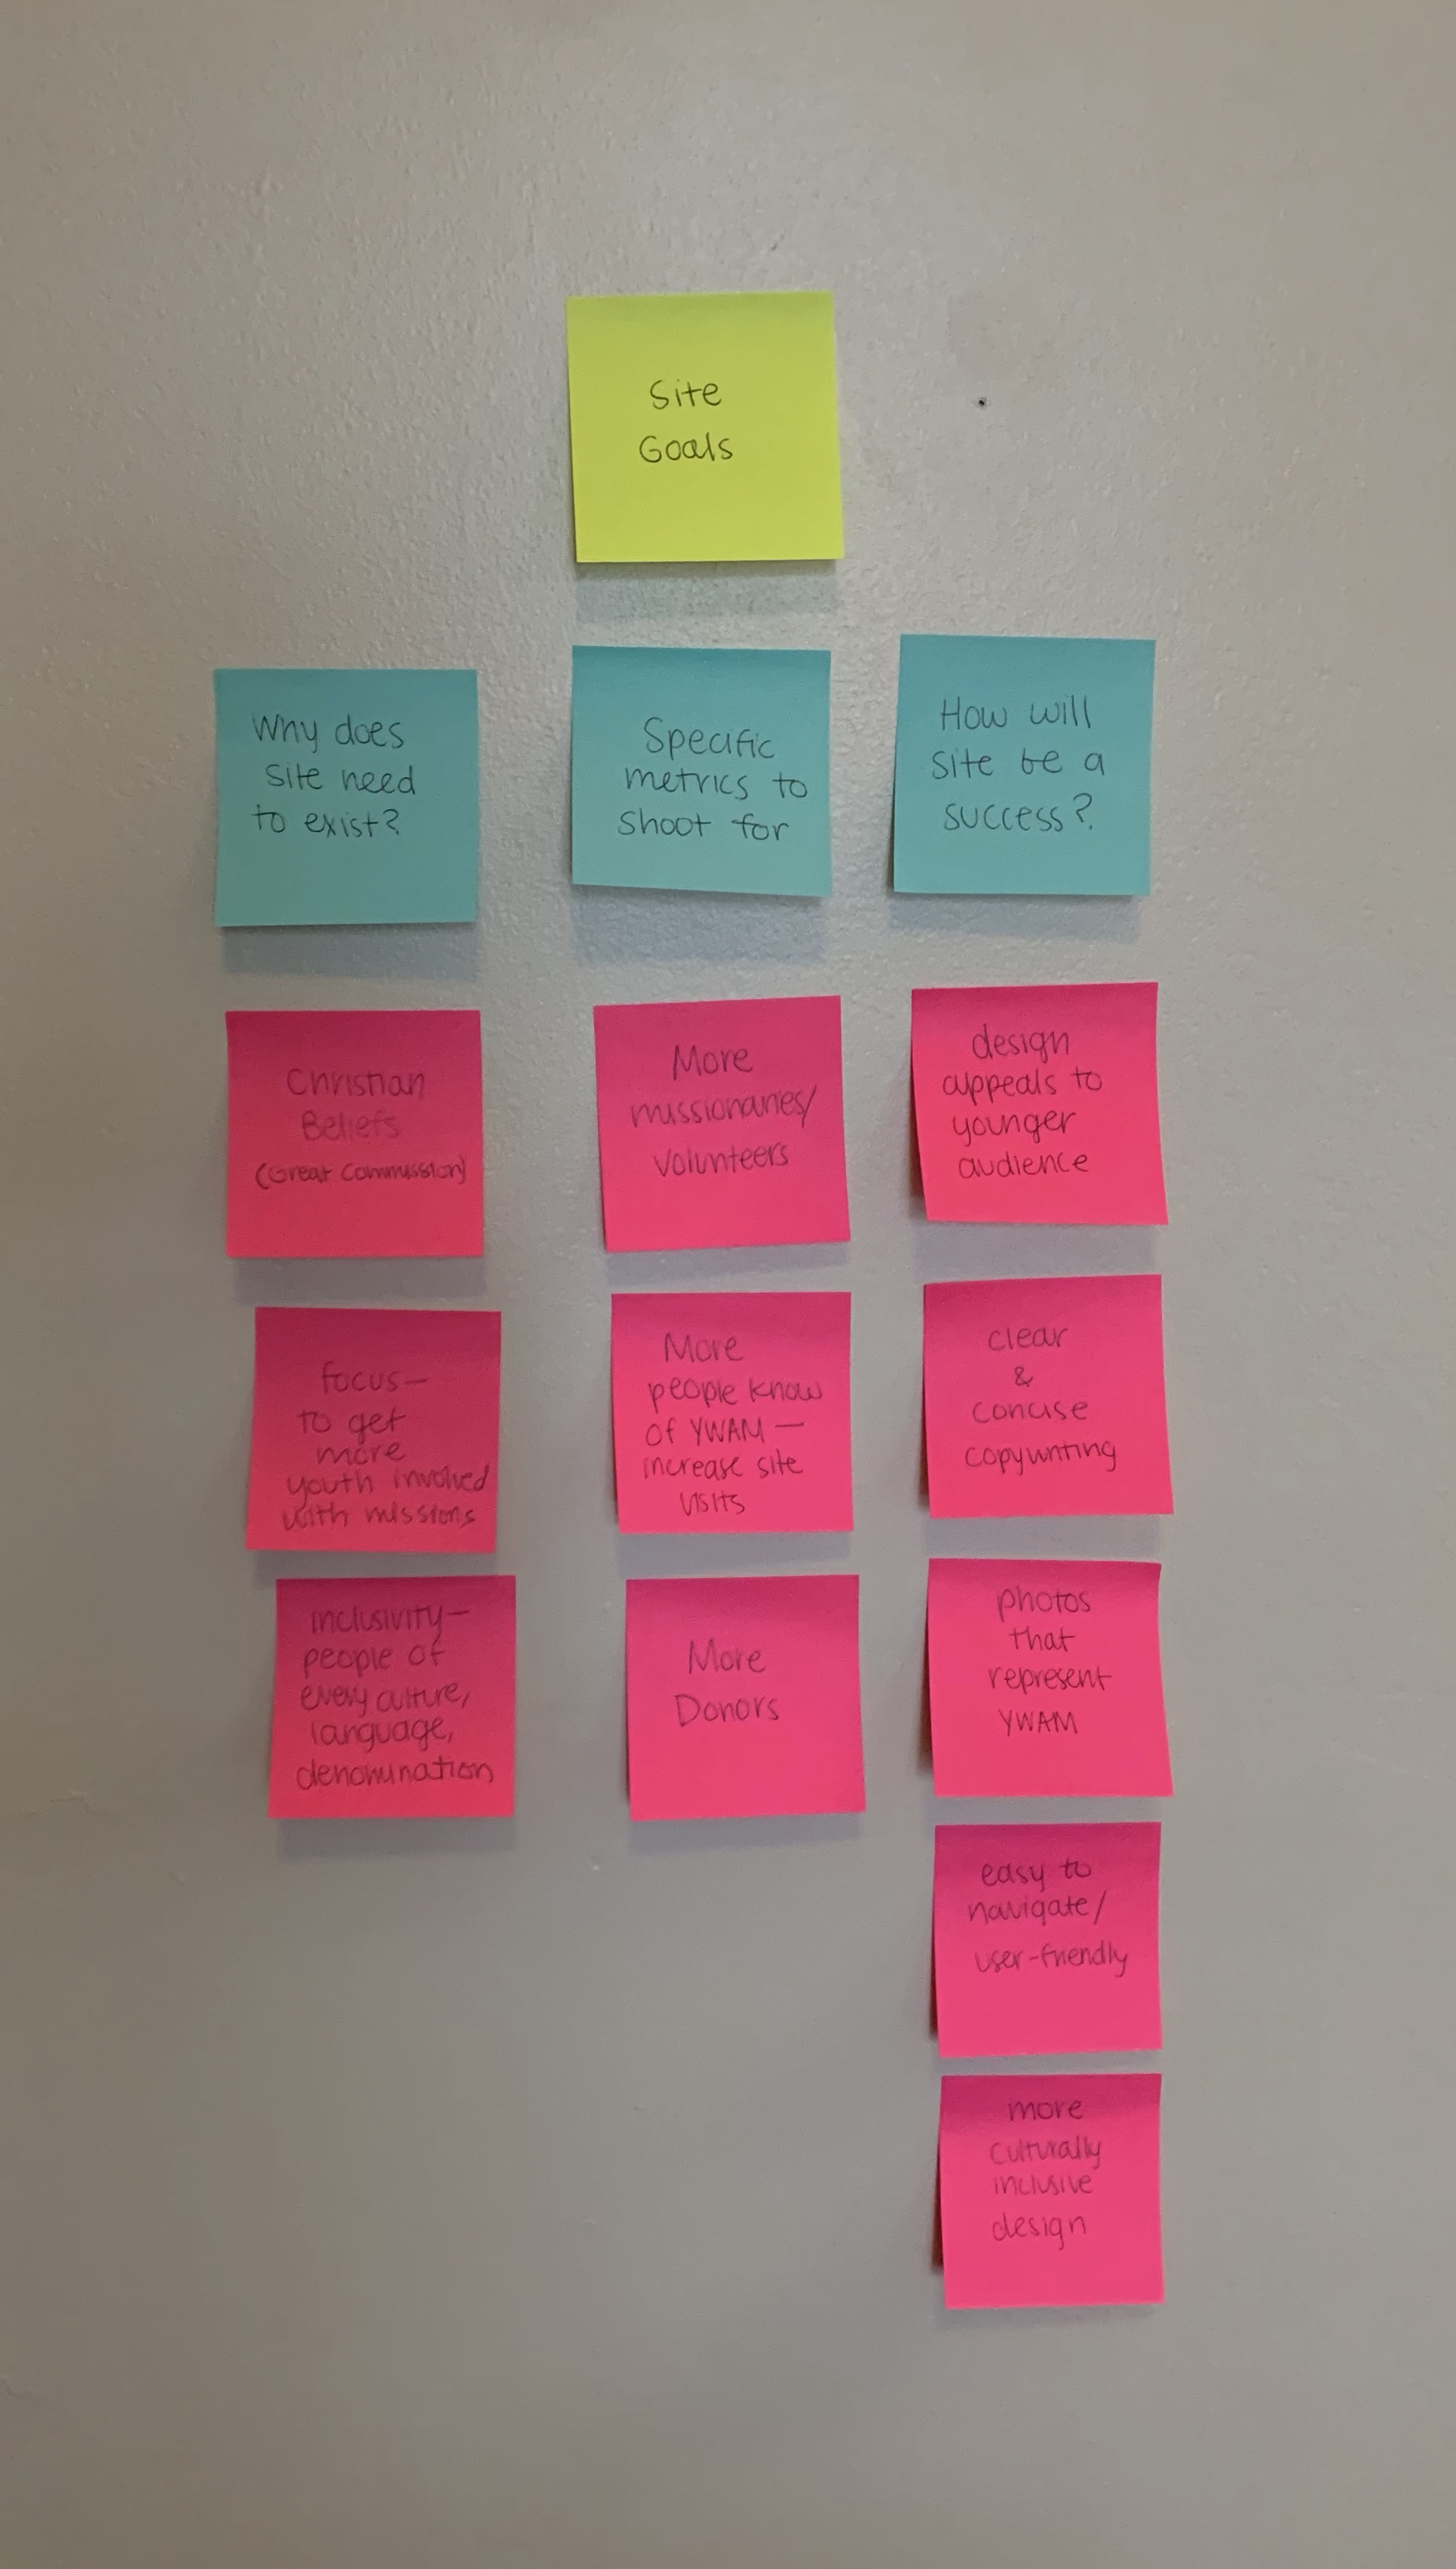 Site
Goals
Why does
site need
to exist?
Christian
Beliefs
(Great Commission)
focus—
to get
more
youth involved
with missions
inclusivity—
people of
every culture,
language,
denomination
Specific
metrics to
shoot for
More
missionaries/
volunteers
More
people know
of YWAM —
increase site
visits
More
Donors
How will
site be a
success?
design
appeals to
younger
audience
clear
&
concise
copywriting
photos
that
represent
YWAM
easy to
navigate/
user-friendly
more
culturally
inclusive
design